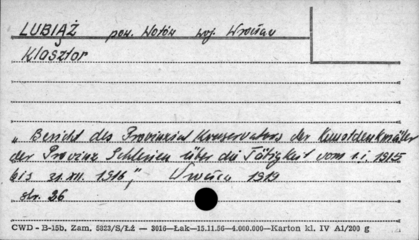 LUBIĄŻ pow. Wołów woj. Wrocław
Klasztor
„Bericht des Provinzial Konservators der Kunstdenkmäler
der Provinz Schlesien über die Tätigkeit vom 1.I. 1915
bis 31.XII. 1916", Wrocław 1919
str. 36
CWD - B-15b, Zam. 5823/S/ŁŻ — 3016—Łak—15.11.56—4.000.000—Karton kl. IV A1/200 g